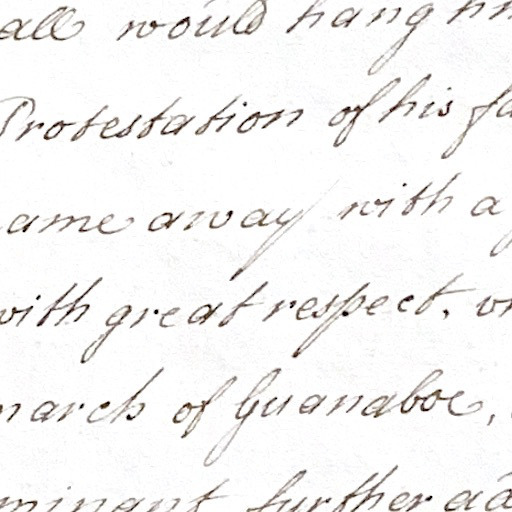 all would hang
Protestation of his
ame away with a
with great respect.
march of Guanaboe,
minant further